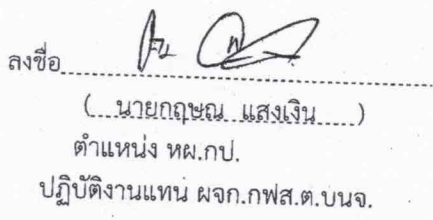 ลงชื่อ
( นายกฤษณ แสงเงิน )
ตำแหน่ง หผ.กป.
ปฏิบัติงานแทน ผจก.กฟส.ต.บนจ.